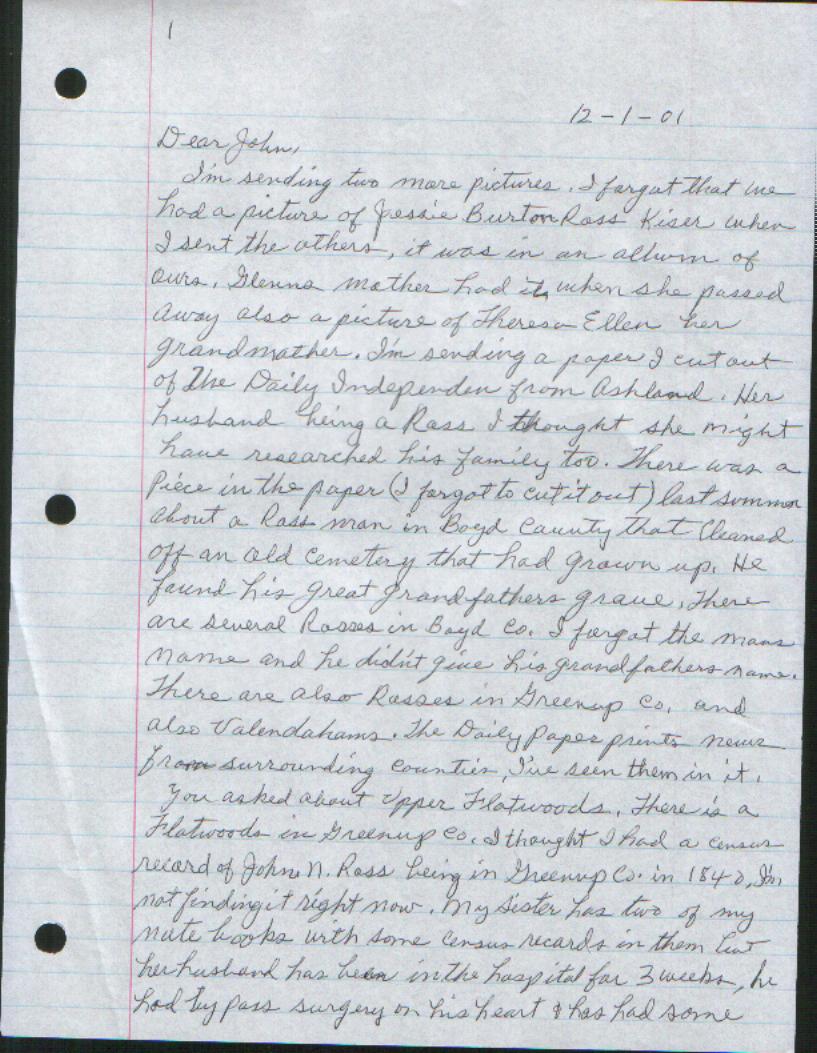 1
12-1-01
Dear John,
I'm sending two more pictures. I forgot that we
had a picture of Jessie Burton Ross Kiser when
I sent the others, it was in an album of
ours. Glenna mother had it, when she passed
away also a picture of Theresa Ellen her
grandmother. I'm sending a paper I cut out
of The Daily Independen from Ashland. Her
husband being a Ross I thought she might
have researched his family too. There was a
piece in the paper (I forgot to cut it out) last summer
about a Ross man in Boyd County that cleaned
off an old cemetery that had grown up. He
found his great grandfathers grave. There
are several Rosses in Boyd Co. I forgot the mans
name and he didn't give his grandfathers name.
There are also Rosses in Greenup Co. and
also Valendahams. The Daily Paper prints news
from surrounding counties, I've seen them in it.
You asked about Upper Flatwoods. There is a
Flatwoods in Greenup Co. I thought I had a census
record of John N. Ross being in Greenup Co. in 1840, I'm
not finding it right now. My sister has two of my
note books with some census records in them but
her husband has been in the hospital for 3 weeks, he
had by pass surgery on his heart & has had some